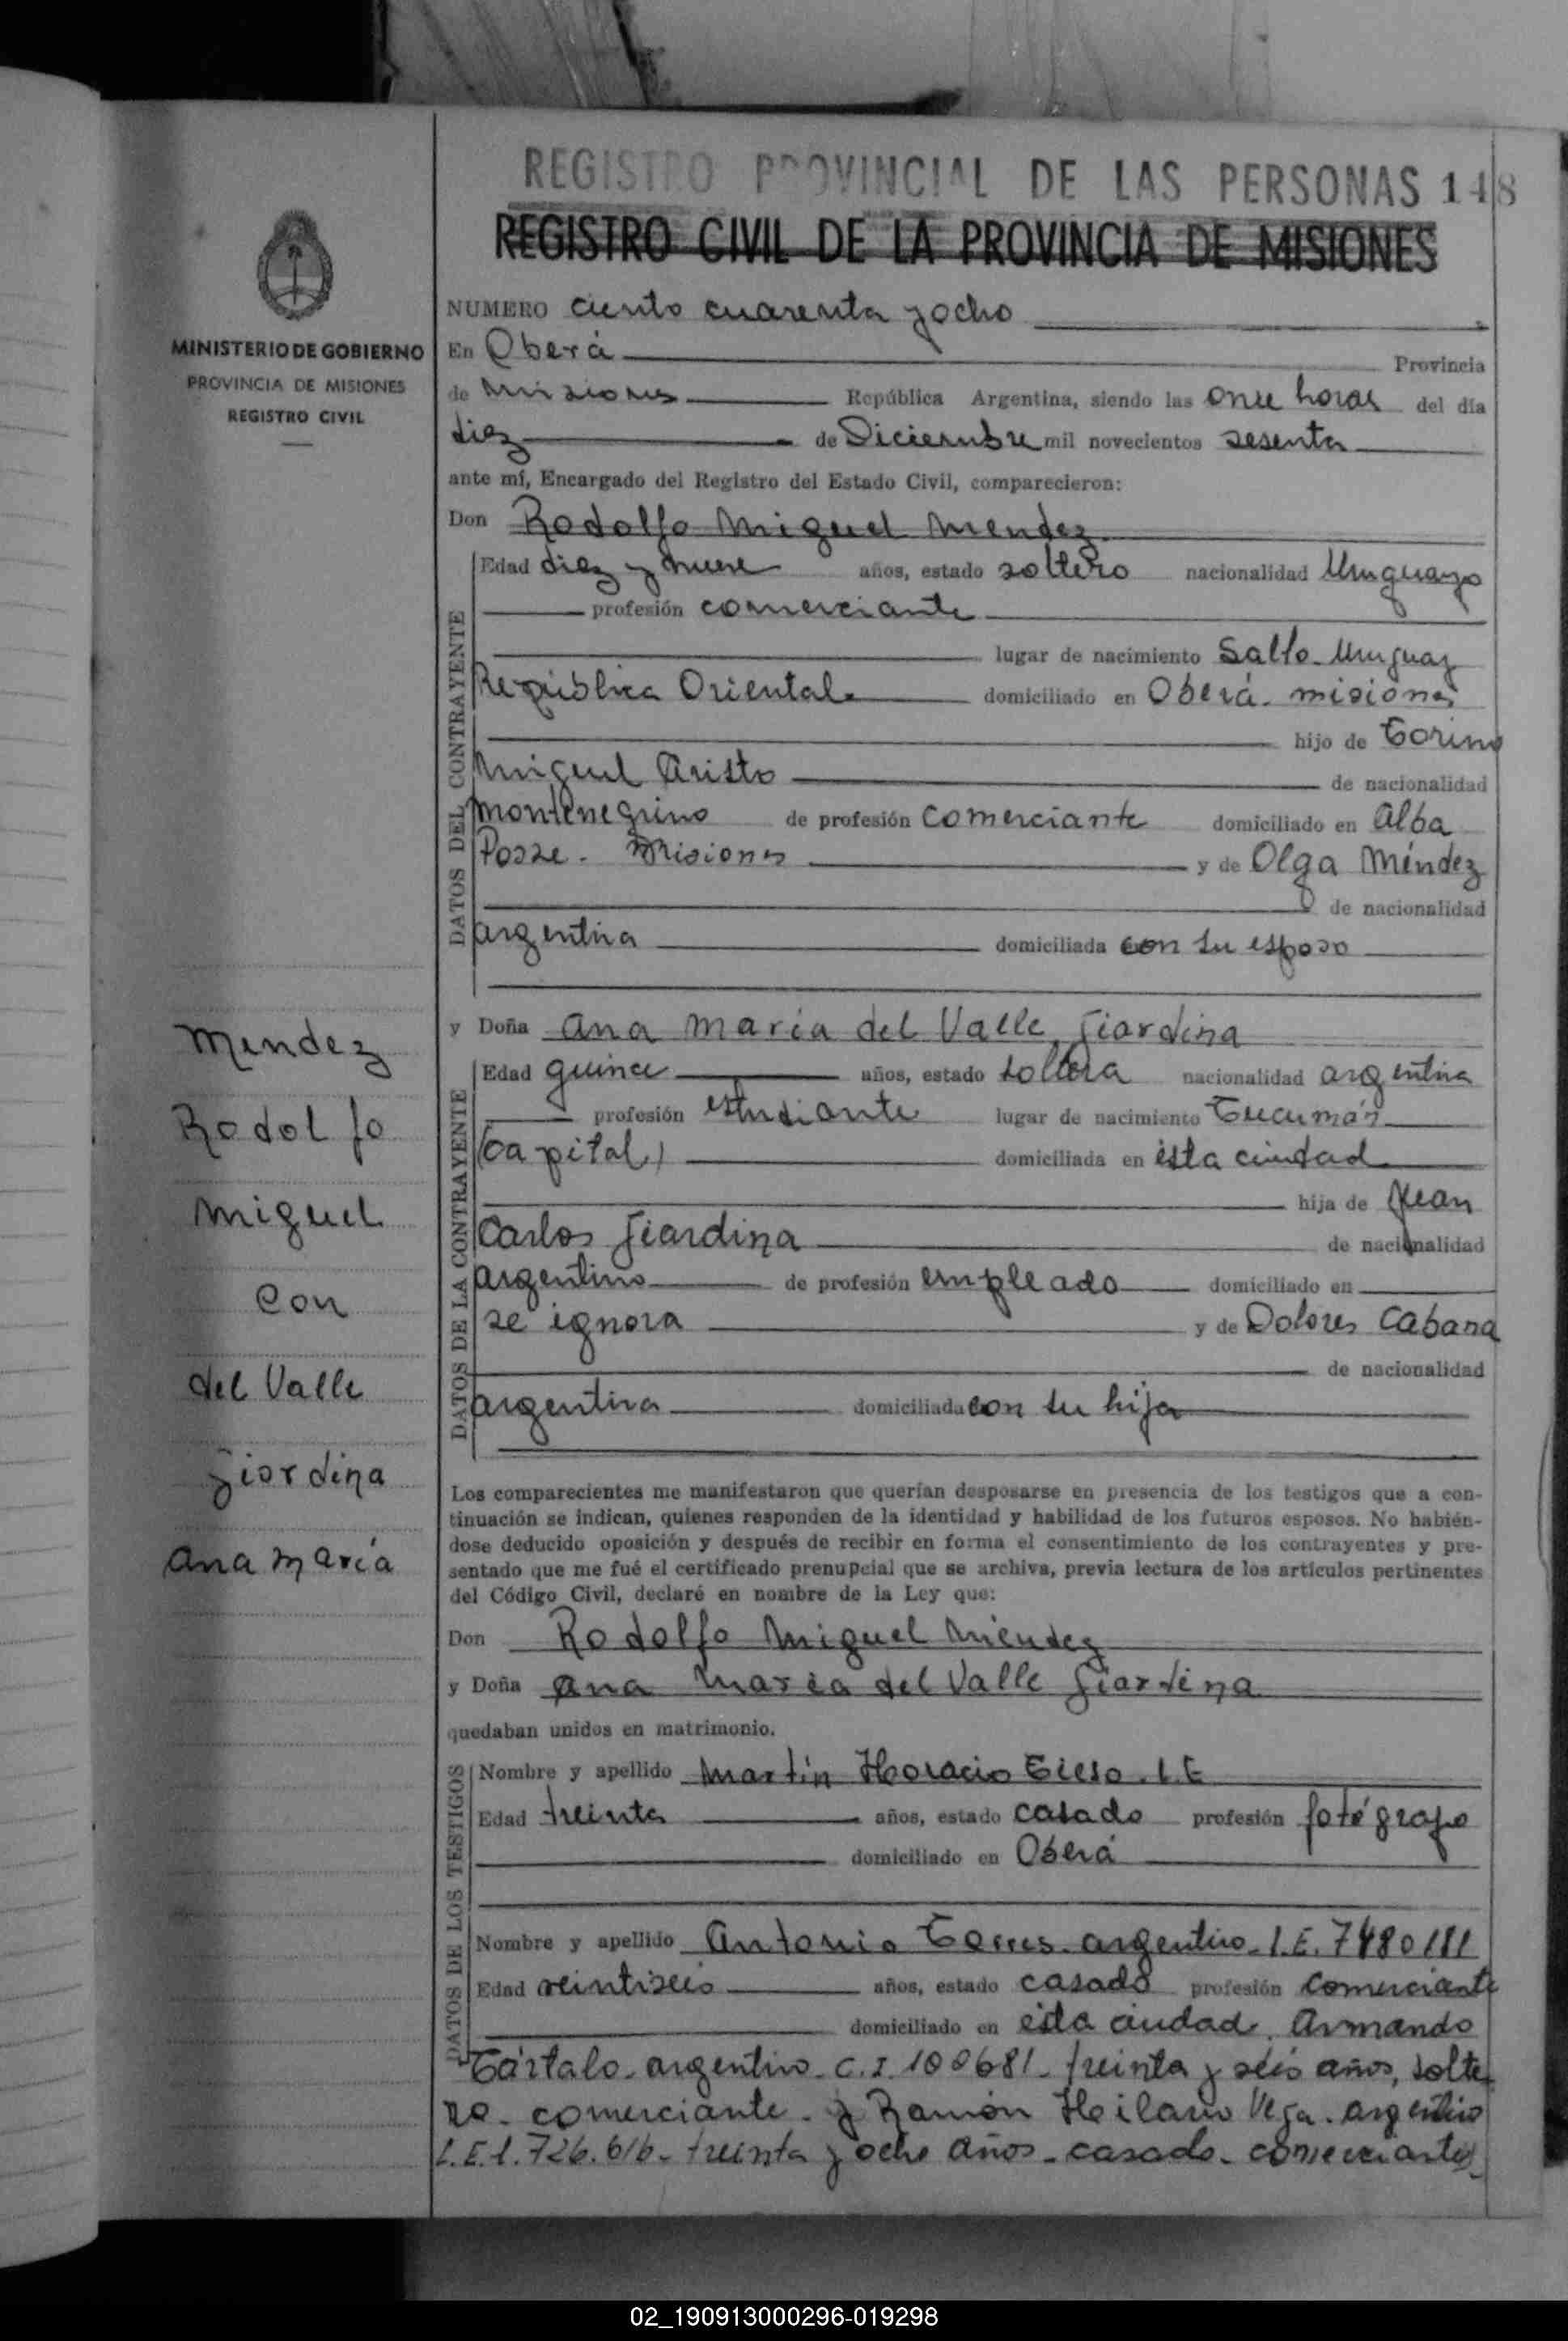 REGISTRO PROVINCIAL DE LAS PERSONAS 148
REGISTRO CIVIL DE LA PROVINCIA DE MISIONES
MINISTERIO DE GOBIERNO
PROVINCIA DE MISIONES
REGISTRO CIVIL
NUMERO ciento cuarenta y ocho
En Oberá Provincia
de Misiones República Argentina, siendo las once horas del día
diez de Diciembre mil novecientos sesenta
ante mí, Encargado del Registro del Estado Civil, comparecieron:
Don Rodolfo Miguel Mendez
Edad diez y nueve años, estado soltero nacionalidad Uruguayo
profesión comerciante
lugar de nacimiento Salto. Uruguay
República Oriental. domiciliado en Oberá. misiones
hijo de Torino
Miguel Aristo de nacionalidad
montenegrino de profesión comerciante domiciliado en Alba
Posse. Misiones y de Olga Méndez
de nacionalidad
argentina domiciliada con su esposo
DATOS DEL CONTRAYENTE
y Doña Ana Maria del Valle Giardina
Edad quince años, estado soltera nacionalidad argentina
profesión estudiante lugar de nacimiento Tucumán
(capital) domiciliada en esta ciudad
hija de Juan
Carlos Giardina de nacionalidad
argentino de profesión empleado domiciliado en
se ignora y de Dolores Cabana
de nacionalidad
argentina domiciliada con su hija
DATOS DE LA CONTRAYENTE
Mendez
Rodolfo
Miguel
con
del Valle
Giardina
Ana María
Los comparecientes me manifestaron que querían desposarse en presencia de los testigos que a con-
tinuación se indican, quienes responden de la identidad y habilidad de los futuros esposos. No habién-
dose deducido oposición y después de recibir en forma el consentimiento de los contrayentes y pre-
sentado que me fué el certificado prenupcial que se archiva, previa lectura de los artículos pertinentes
del Código Civil, declaré en nombre de la Ley que:
Don Rodolfo Miguel Méndez
y Doña Ana Maria del Valle Giardina
quedaban unidos en matrimonio.
Nombre y apellido Martín Horacio L.E
Edad treinta años, estado casado profesión fotógrafo
domiciliado en Oberá
Nombre y apellido Antonio Torres. argentino. L.E. 7480111
Edad veintiseis años, estado casado profesión comerciante
domiciliado en esta ciudad. Armando
Tártalo. argentino. C.I. 100681. treinta y seis años, solte
ro. comerciante. y Ramón Hilario Vega. argentino
L.E.1.726.616. treinta y ocho años. casado. comerciante
DATOS DE LOS TESTIGOS
02_190913000296-019298